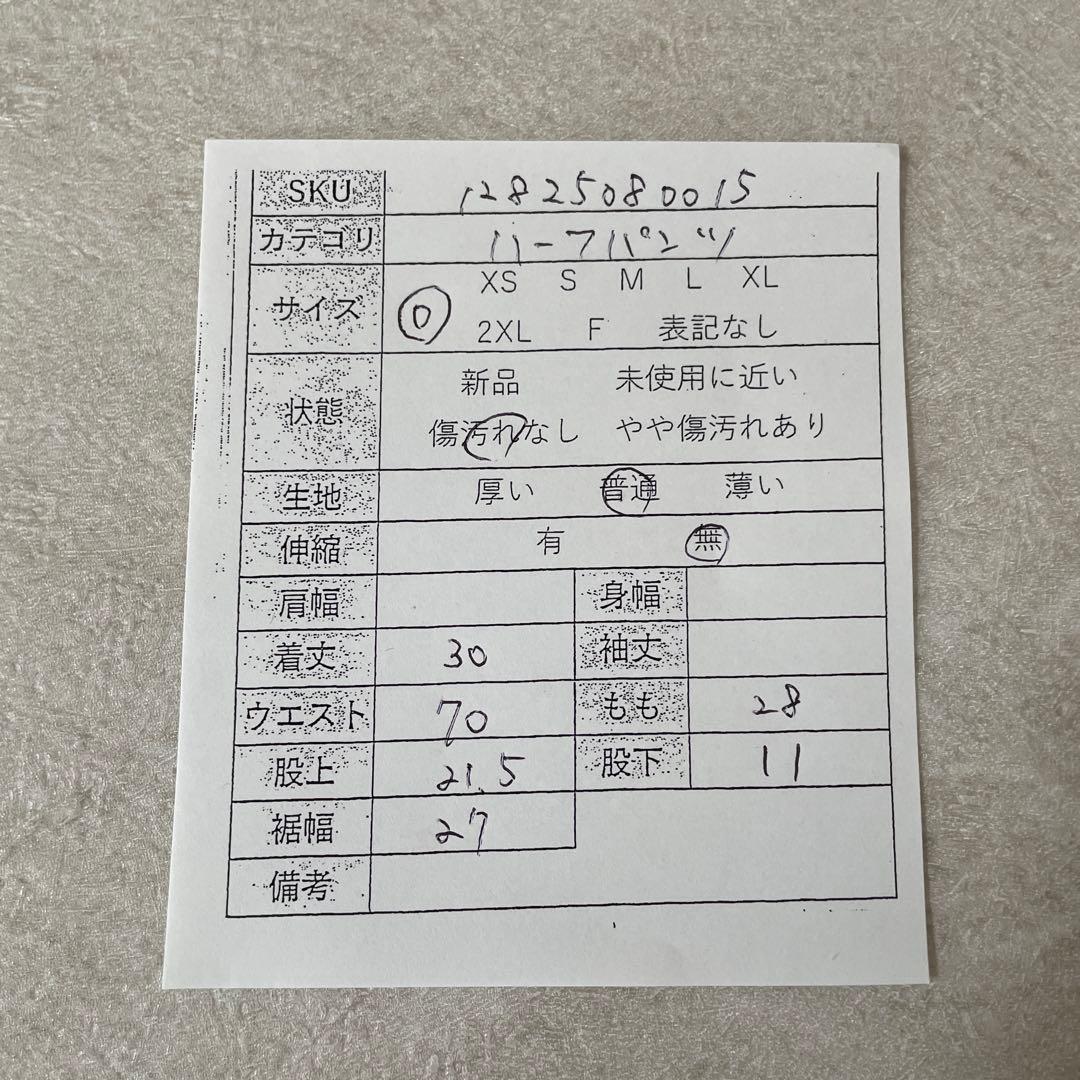 SKU 12825080015
カテゴリ ハーフパンツ
サイズ 0 XS S M L XL
2XL F 表記なし
状態 新品 未使用に近い
傷汚れなし やや傷汚れあり
生地 厚い 普通 薄い
伸縮 有 無
肩幅 身幅
着丈 30 袖丈
ウエスト 70 もも 28
股上 21.5 股下 11
裾幅 27
備考